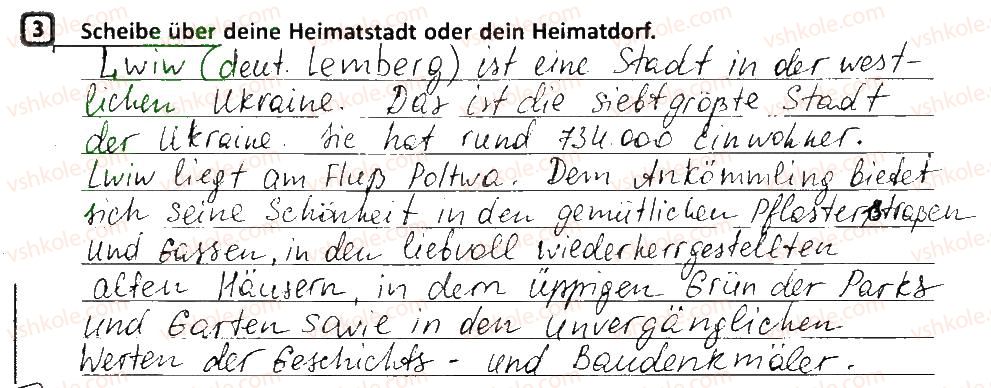 3 Scheibe über deine Heimatstadt oder dein Heimatdorf.
Lwiw (deut. Lemberg) ist eine Stadt in der west-
lichen Ukraine. Das ist die siebtgrößte Stadt
der Ukraine. Sie hat rund 734.000 Einwohner.
Lwiw liegt am Fluß Poltwa. Dem Ankömmling bietet
sich seine Schönheit in den gemütlichen Pflasterstraßen
und Gassen, in den liebvoll wiederhergestellten
alten Häusern, in dem üppigen Grün der Parks
und Garten sowie in den unvergänglichen
Werten der Geschichts - und Baudenkmäler.